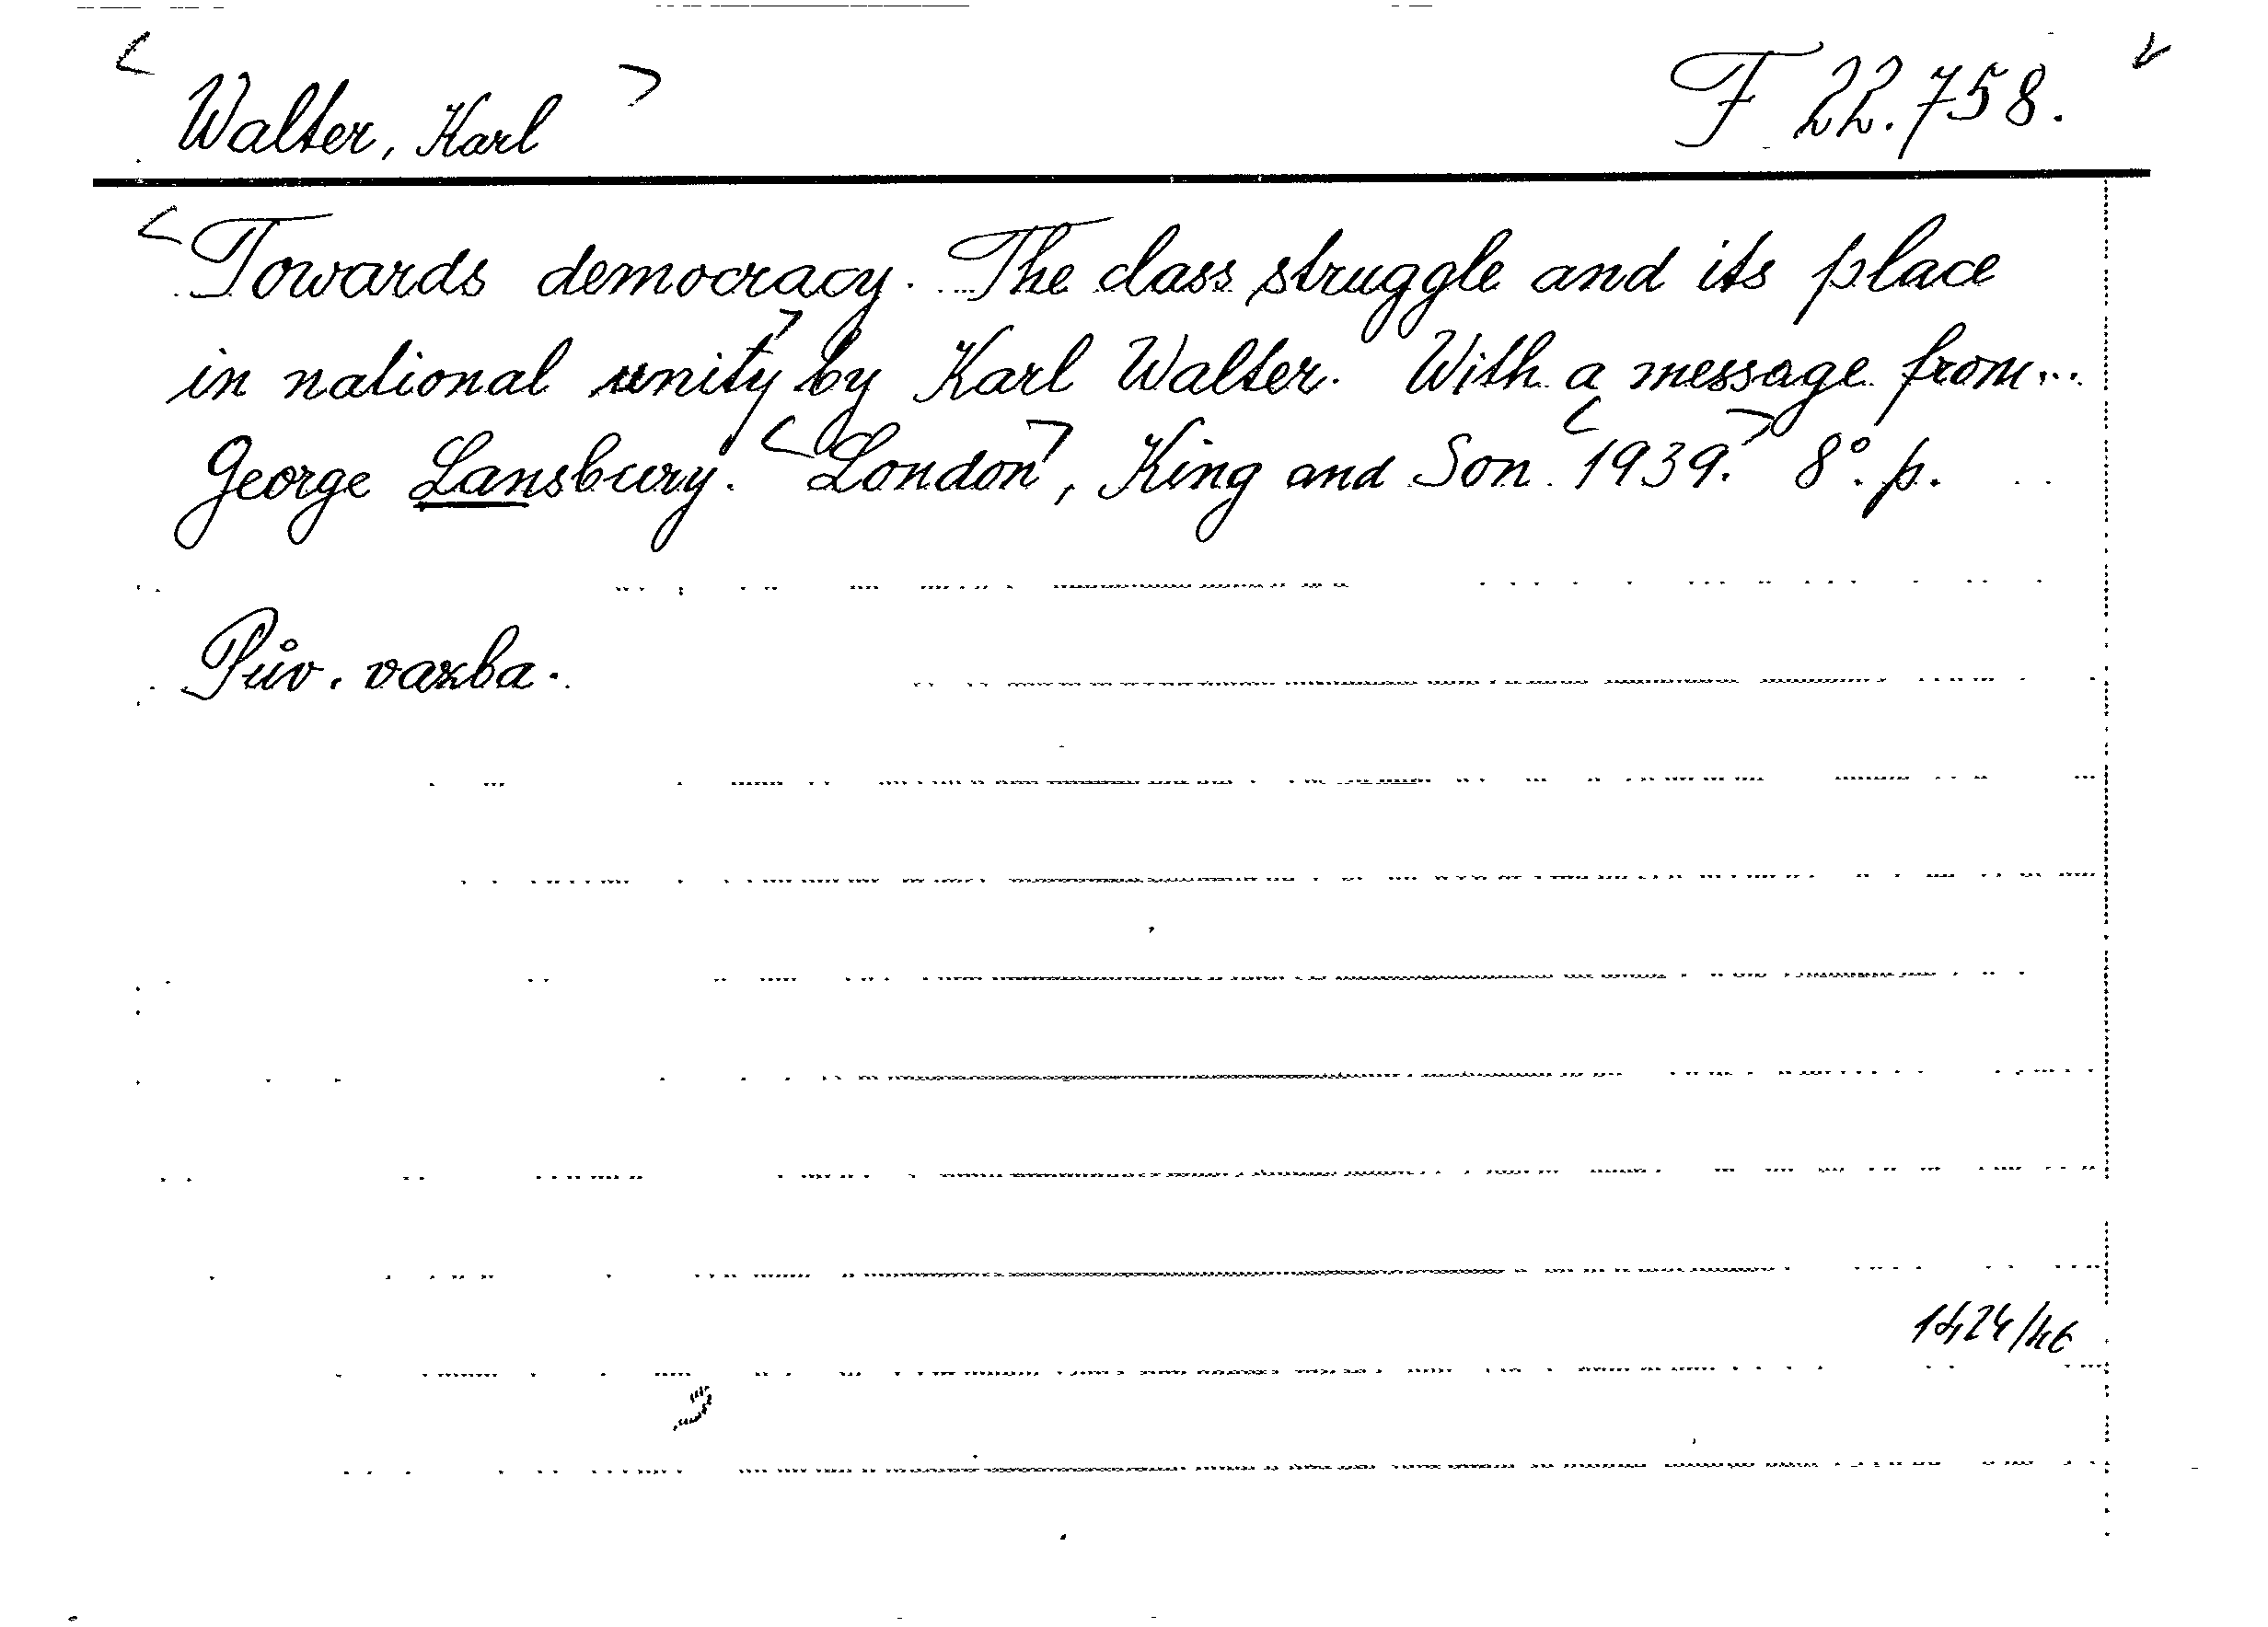 Walter, Karl
F 22.758.
Towards democracy. The class struggle and its place
in national unity by Karl Walter. With a message from...
George Lansbury. London, King and Son. 1939. 8°. p.
Pův. vazba.